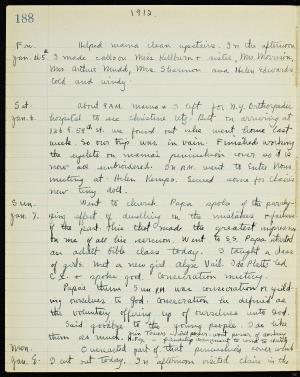 188
1912.
Fri. Helped mama clean upstairs. In the afternoon
Jan. 5th I made calls on Miss Kilburn & sister, Mrs. Morrison,
Mrs. Arthur Mudd, Mrs. Shannon and Helen Edwards.
Cold and windy.
Sat. About 9 A.M. mama & I left for N.Y. Orthopedic
Jan. 6. hospital to see Christine. But on arriving at
126 E. 59th st. we found out she went home last
week. So our trip was in vain. Finished working
the eyelets on mama's pincushion cover so it is
now all embroidered. In P.M. went to
meeting at Helen Kemps. Sewed some for
new tiny doll.
Sun. Went to church. Papa spoke of the paralyz-
Jan. 7. ing effect of dwelling on the mistakes & failures
of the past. This that made the greatest impression
on me of all his sermon. Went to S.S. Papa started
an adult bible class today. I taught a class
of girls. Met a new girl Vail. Led
C.E. & spoke good. Consecration meeting.
Papa's theme 5 P.M. was consecration or yield-
ing ourselves to God. Consecration is defined as
the voluntary offering up of ourselves unto God.
Said goodbye to the young people. I do like
them as much.
Mon. Overacted part of that pincushion cover which
Jan. 8. I cut out today. In afternoon visited Claire in the